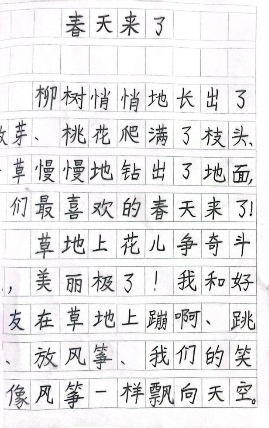 春天来了
柳树悄悄地长出了
芽、桃花爬满了枝头,
草慢慢地钻出了地面,
们最喜欢的春天来了!
草地上花儿争奇斗
,美丽极了!我和好
友在草地上蹦啊、跳
、放风筝、我们的笑
像风筝一样飘向天空。